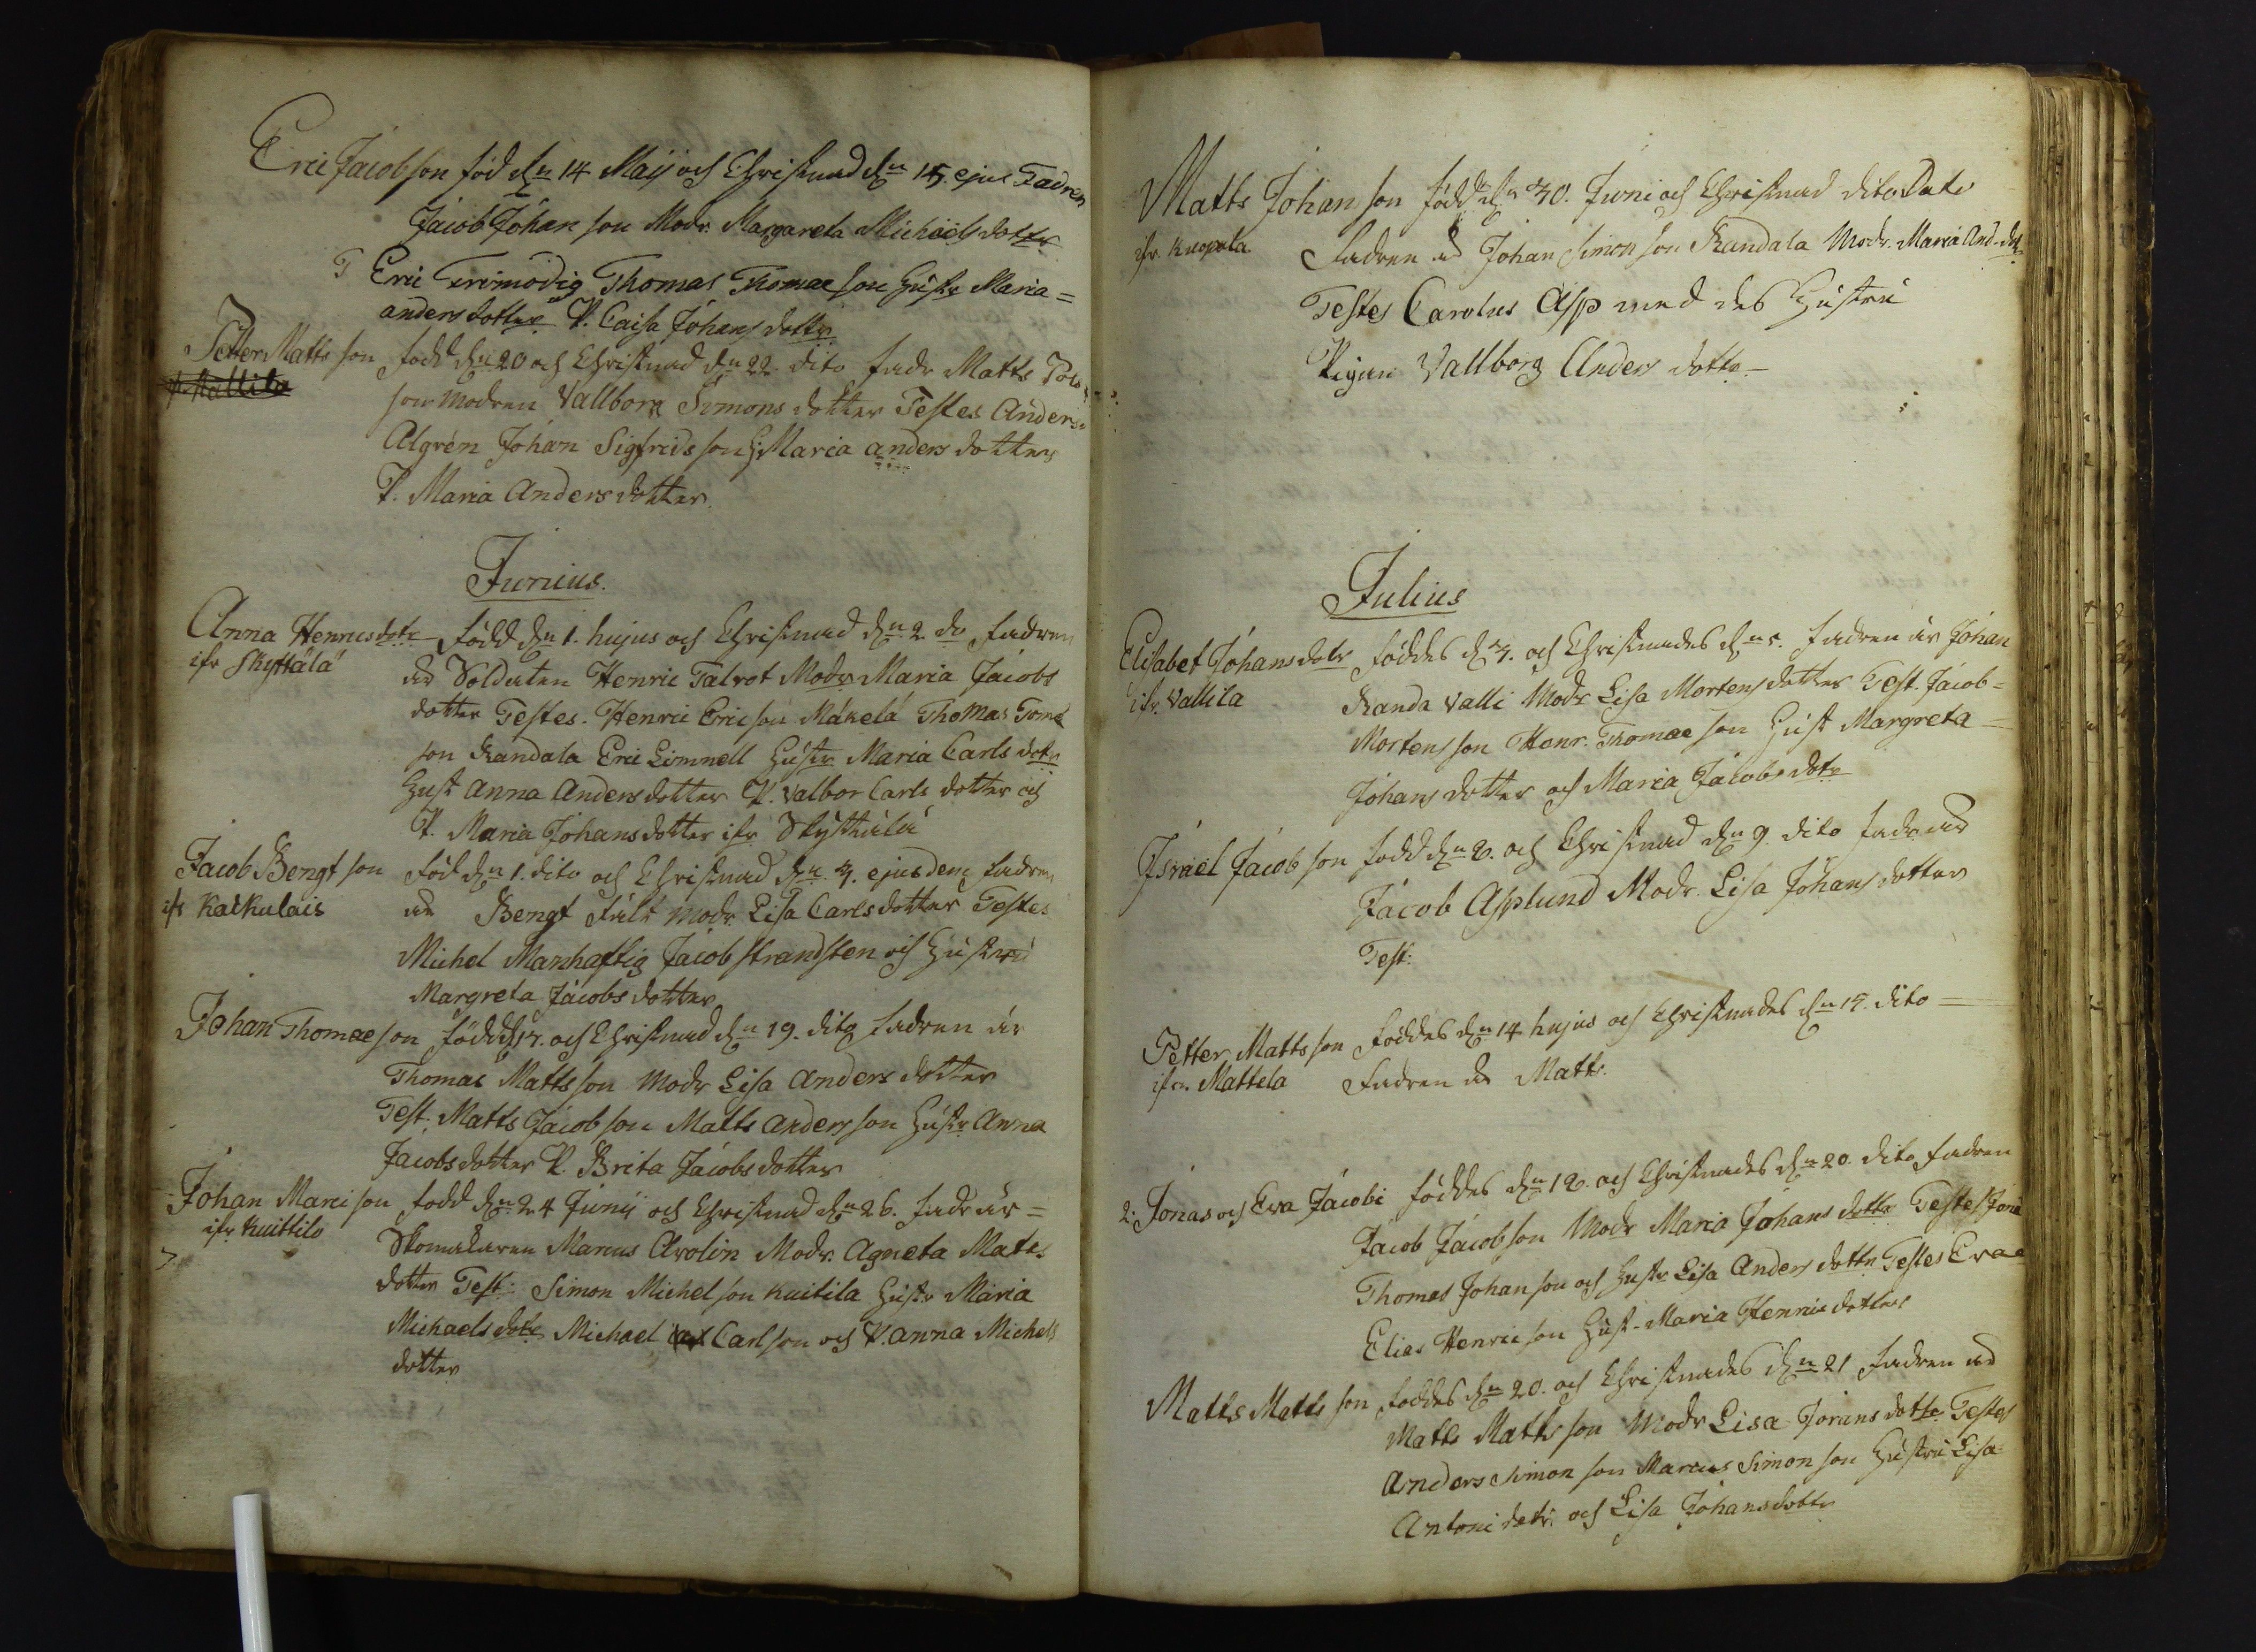 Eric Jacobson föd dn 14 Maij och Christnad dn 15. ejus Fadren
Jacob Johan son Modr. Margareta Michäels dotter
T Eric Frimodig Thomas Thomae son Hustr Maria =
anders dotter P. Caisa Johans dottr
Petter Matts son född dn 20 och Christnad dn 22 dito fadr Matts
son modren Vallborg Simons dotter Testes Anders
Algrén Johan Sigfrids son H. Maria anders dotter
P. Maria Anders dotter.
Junius.
Anna Henricsdotr född dn 1. hujus och Christnad dn 2 do fadren
ifr Skyttälä är Soldaten Henric Talrot Modr Maria Jacobs
dotter Testes. Henric Ericson Mäkelä Thomas Tome
son Kandala Eric Limnell Hustr Maria Carls dotr
Hust Anna Anders dotter P. Valbor Carls dotter och
P. Maria Johans dotter ifr Skyttälä
Jacob Bengt son föd dn 1. dito och Christnad dn 3. ejusdem fadren
ifr Kaikulais är Bengt Fält modr. Lisa Carls dotter Testes
Michel Manhaftig Jacob Strandsten och Hustru
Margreta Jacobs dotter
Johan Thomae son född d 17. och Christnad dn 19. dito fadren är
Thomas Matts son Modr Lisa Anders dotter
Test. Matts Jacob son Matts Anders son Hustr Anna
Jacobs dotter P. Brita Jacobs dotter
Johan Marci son född dn 24 Junij och Christnad dn 26. fadr är =
ifr Kuittilo Skomakaren Marcus Arolin Modr. Agneta Mats
dotter Test: Simon Michel son Kuitila Hustr Maria
Michaels dotr Michael Carlson och P. Anna Michels
dotter
Matts Johan son född dn 30. Juni och Christnad dito Dato
ifr Knopola Fadren är Johan Simon son Kandala Modr. Maria And. dotr
Testes Carolus Asp med des Hustru
Pigan Vallborg Anders dottr
Julius
Elisabet Johans dotr föddes d 3. och Christnades dn 5. fadren är Johan
ifr. Vallila Kanda Valli Modr Lisa Mortens dotter Test. Jacob =
Mortens son Henr. Thomae son Hust Margreta =
Johans dotter och Maria Jacobs dotr
Israel Jacob son född dn 8. och Christnad dn 9. dito fadr är
Jacob Asplund Modr. Lisa Johans dotter
Test:
Petter Matts son föddes dn 14 hujus och Christnades dn 15. dito =
ifrn Mattela Fadren är Matts.
2. Jonas och Eva Jacobi föddes dn 18. och Christnades dn 20. dito fadren
Jacob Jacobson Modr Maria Johans dottr Testes Jonæ
Thomas Johan son och Hustr Lisa Anders dottr Testes Evae
Elias Henric son Hust. Maria Henrics dotter
Matts Matts son föddes dn 20. och Christnades dn 21 fadren är
Matts Matts son Modr Lisa Jörans dotter Testes
Anders Simon son Marcus Simon son Hustru Lisa
Antoni dotr. och Lisa Johans dottr